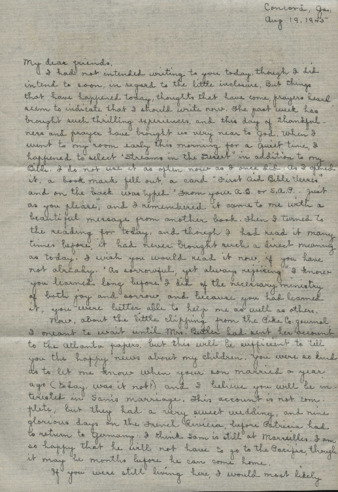 Concord, Ga.
Aug 19, 1945
My dear friends,
I had not intended writing to you today, though I did
intend to soon, in regard to the little inclosure. But things
that have happened today, thoughts that have come, prayers heard
seem to indicate that I should write now. The past week has
brought such thrilling experiences, and this day of thankful-
ness and prayer have brought us very near to God. When I
went to my room early this morning for a quiet time, I
happened to select "Streams in the Desert" in addition to my
Bible. I do not use it as often now as I once did. As I opened
it, a book mark fell out, a card "First Aid Bible Verses"
and on the back was typed "From your A.B. or S.A.P." just
as you please, and I remembered it came to me with a
beautiful message from another book. Then I turned to
the reading for today, and though I had read it many
times before, it had never brought such a direct meaning
as today. I wish you would read it now, if you have
not already. "As sorrowful, yet always rejoicing" I know
you learned long before I did of the necessary ministry
of both joy and sorrow, and because you had learned
it, you were better able to help me as well as others.
Now, about the little clipping from the Pike Co Journal
I meant to wait until Mrs. had sent her account
to the Atlanta papers, but this will be sufficient to tell
you the happy news about my children. You were so kind
as to let me know when your son married a year
ago (today, was it not?) and I believe you will be in-
terested in Sam's marriage. This account is not com
plete, but they had a very sweet wedding, and nine
glorious days on the French Riviera, before Patricia had
to return to Germany. I think Sam is still at Marseilles. I am
so happy that he will not have to go to the Pacific, though
it may be months before he can come home.
If you were still living here I would most likely